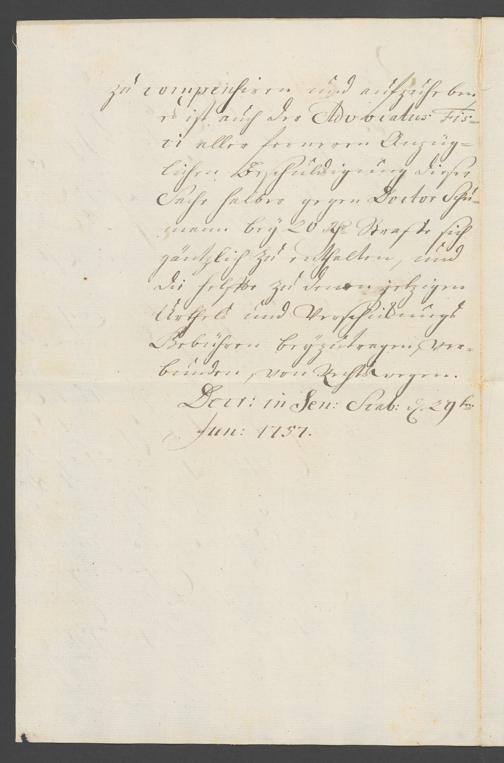 zu compensiren und aufzuheben
es ist auch der Advocatus Fis-
ci aller ferneren Anzüg-
lichen Beschuldigung dieser
Sache halber gegen Doctor Schu-
mann bey 20 Straffe sich
gäntzlich zu enthalten, und
die helffte zu denen jetzigen
Urthels und Verschickungs
Gebühren beyzutragen, ver-
bunden, von Rechts wegen.
Decr: in Sen: Scab: d. 29ten
Jun: 1757.